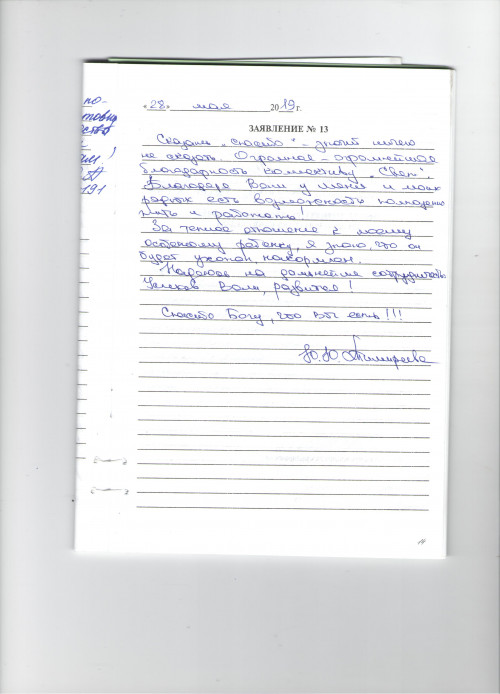 по-
191
«28» мая 2019 г.
ЗАЯВЛЕНИЕ № 13
Сказать „спасибо" – значит ничего
не сказать. Огромное – огромнейшая
благодарность коллективу „Свет".
Благодаря Вам у меня и моих
родных есть возможность полноценно
жить и работать!
За теплое отношение к моему
особенному ребенку, я знаю, что он
будет ухожен, накормлен.
Надеюсь на дальнейшее сотрудничество.
Успехов Вам, развития!
Спасибо Богу, что Вы есть!!!
Ю.Ю.
14